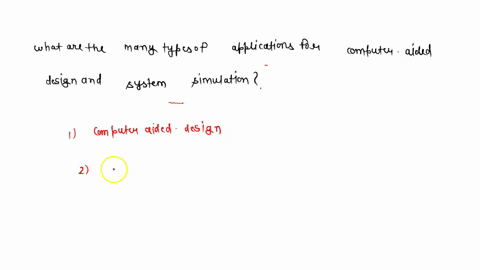 what are the many types of applications for computer-aided
design and system simulation?
1) Computer aided-design
2)